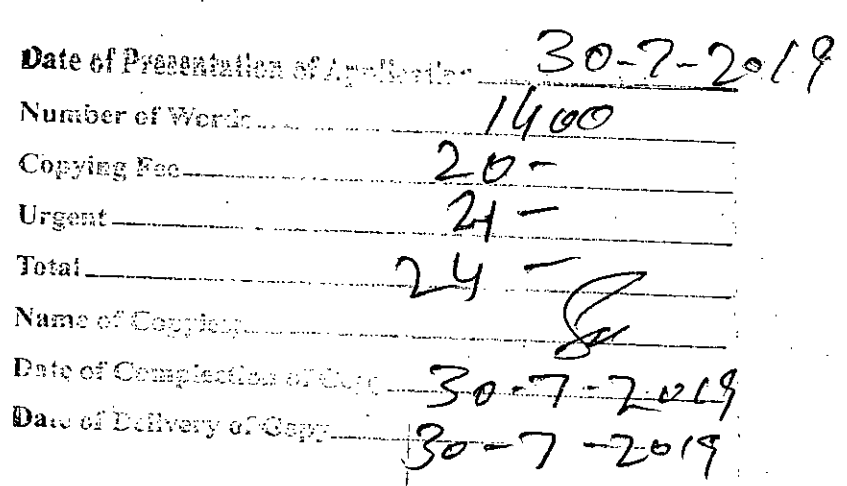 Date of Presentation of Application 30-7-2019
Number of Words 1400
Copying Fee 20-
Urgent 4-
Total 24-
Name of Copyiest
Date of Complection of Copy 30-7-2019
Date of Delivery of Copy 30-7-2019